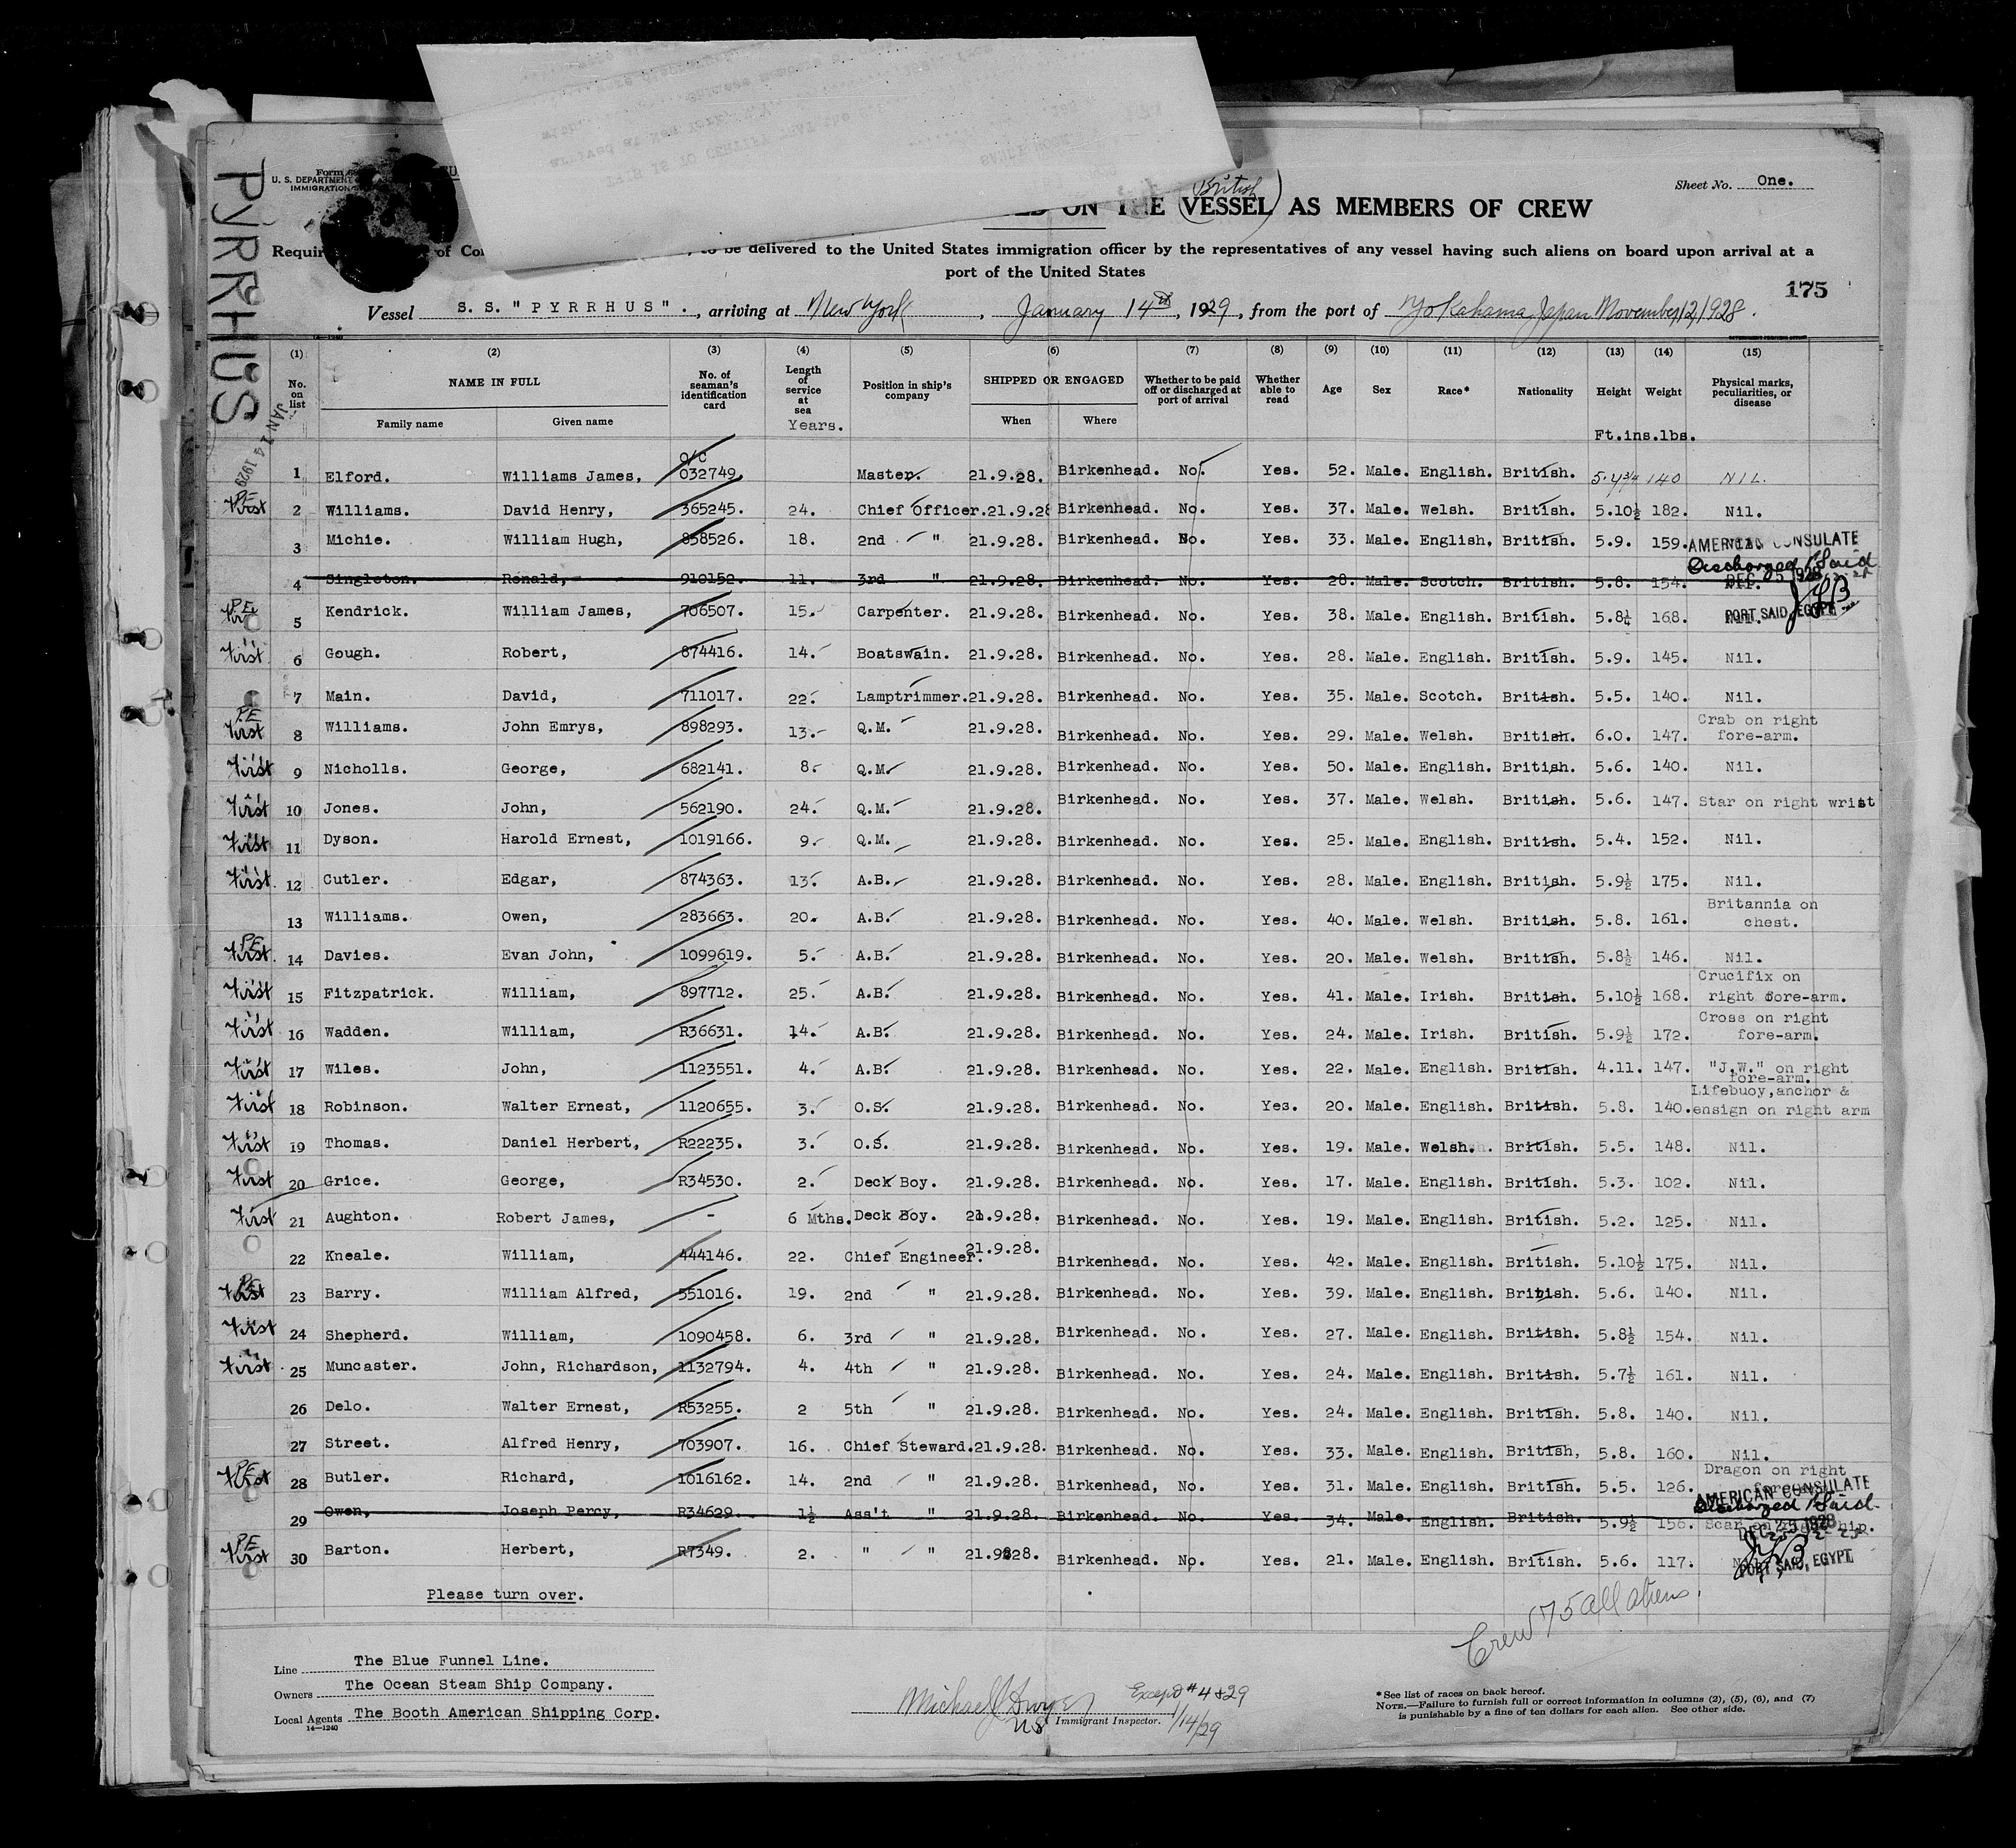 PYRRHUS
JAN 14 1929
U. S. DEPARTMENT
IMMIGRATION
Sheet No. One.
British
ON THE VESSEL AS MEMBERS OF CREW
to be delivered to the United States immigration officer by the representatives of any vessel having such aliens on board upon arrival at a
port of the United States
175
Vessel S. S. "PYRRHUS". , arriving at New York , January 14th, 1929, from the port of Yokahama, Japan November, 12, 1928.
14—1240
(1) (2) (3) (4) (5) (6) (7) (8) (9) (10) (11) (12) (13) (14) (15)
No. on list NAME IN FULL Family name Given name No. of seaman's identification card Length of service at sea Years. Position in ship's company SHIPPED OR ENGAGED When Where Whether to be paid off or discharged at port of arrival Whether able to read Age Sex Race* Nationality Height Weight Physical marks, peculiarities, or disease
Ft.ins.lbs.
1 Elford. Williams James, o/c 032749. Master. 21.9.28. Birkenhead. No. Yes. 52. Male. English. British. 5.4¾ 140 NIL.
PE First 2 Williams. David Henry, 365245. 24. Chief Officer. 21.9.28 Birkenhead. No. Yes. 37. Male. Welsh. British. 5.10½ 182. Nil.
3 Michie. William Hugh, 858526. 18. 2nd " 21.9.28. Birkenhead. No. Yes. 33. Male. English, British. 5.9. 159.
AMERICAN CONSULATE
Discharged P Said
4 Singleton. Ronald, 910152. 11. 3rd " 21.9.28. Birkenhead. No. Yes. 28. Male. Scotch. British. 5.8. 154. Nil.
DEC 25 1928
PORT SAID, EGYPT
PE 5 Kendrick. William James, 706507. 15. Carpenter. 21.9.28. Birkenhead. No. Yes. 38. Male. English. British. 5.8¼ 168. Nil.
First 6 Gough. Robert, 874416. 14. Boatswain. 21.9.28. Birkenhead. No. Yes. 28. Male. English. British. 5.9. 145. Nil.
7 Main. David, 711017. 22. Lamptrimmer. 21.9.28. Birkenhead. No. Yes. 35. Male. Scotch. British. 5.5. 140. Nil.
PE First 8 Williams. John Emrys, 898293. 13. Q.M. 21.9.28. Birkenhead. No. Yes. 29. Male. Welsh. British. 6.0. 147. Crab on right fore-arm.
First 9 Nicholls. George, 682141. 8. Q.M. 21.9.28. Birkenhead. No. Yes. 50. Male. English. British. 5.6. 140. Nil.
First 10 Jones. John, 562190. 24. Q.M. 21.9.28. Birkenhead. No. Yes. 37. Male. Welsh. British. 5.6. 147. Star on right wrist
First 11 Dyson. Harold Ernest, 1019166. 9. Q.M. 21.9.28. Birkenhead. No. Yes. 25. Male. English. British. 5.4. 152. Nil.
First 12 Cutler. Edgar, 874363. 13. A.B. 21.9.28. Birkenhead. No. Yes. 28. Male. English. British. 5.9½ 175. Nil.
13 Williams. Owen, 283663. 20. A.B. 21.9.28. Birkenhead. No. Yes. 40. Male. Welsh. British. 5.8. 161. Britannia on chest.
PE First. 14 Davies. Evan John, 1099619. 5. A.B. 21.9.28. Birkenhead. No. Yes. 20. Male. Welsh. British. 5.8½ 146. Nil.
First 15 Fitzpatrick. William, 897712. 25. A.B. 21.9.28. Birkenhead. No. Yes. 41. Male. Irish. British. 5.10½ 168. Crucifix on right fore-arm.
First 16 Wadden. William, R36631. 14. A.B. 21.9.28. Birkenhead. No. Yes. 24. Male. Irish. British. 5.9½ 172. Cross on right fore-arm.
First 17 Wiles. John, 1123551. 4. A.B. 21.9.28. Birkenhead. No. Yes. 22. Male. English. British. 4.11. 147. "J.W." on right fore-arm.
First 18 Robinson. Walter Ernest, 1120655. 3. O.S. 21.9.28. Birkenhead. No. Yes. 20. Male. English. British. 5.8. 140. Lifebuoy, anchor & ensign on right arm
First 19 Thomas. Daniel Herbert, R22235. 3. O.S. 21.9.28. Birkenhead. No. Yes. 19. Male. Welsh. British. 5.5. 148. Nil.
First 20 Grice. George, R34530. 2. Deck Boy. 21.9.28. Birkenhead. No. Yes. 17. Male. English. British. 5.3. 102. Nil.
First 21 Aughton. Robert James, - 6 Mths. Deck Boy. 21.9.28. Birkenhead. No. Yes. 19. Male. English. British. 5.2. 125. Nil.
22 Kneale. William, 444146. 22. Chief Engineer. 21.9.28. Birkenhead. No. Yes. 42. Male. English. British. 5.10½ 175. Nil.
PE First 23 Barry. William Alfred, 551016. 19. 2nd " 21.9.28. Birkenhead. No. Yes. 39. Male. English. British. 5.6. 140. Nil.
First 24 Shepherd. William, 1090458. 6. 3rd " 21.9.28. Birkenhead. No. Yes. 27. Male. English. British. 5.8½ 154. Nil.
First 25 Muncaster. John, Richardson, 1132794. 4. 4th " 21.9.28. Birkenhead. No. Yes. 24. Male. English. British. 5.7½ 161. Nil.
26 Delo. Walter Ernest, R53255. 2 5th " 21.9.28. Birkenhead. No. Yes. 24. Male. English. British. 5.8. 140. Nil.
27 Street. Alfred Henry, 703907. 16. Chief Steward. 21.9.28. Birkenhead. No. Yes. 33. Male. English. British, 5.8. 160. Nil.
PE First 28 Butler. Richard, 1016162. 14. 2nd " 21.9.28. Birkenhead, No. Yes. 31. Male. English. British. 5.5. 126. Dragon on right
AMERICAN CONSULATE
Discharged P Said
29 Owen, Joseph Percy, R34629. 1½ Ass't " 21.9.28. Birkenhead. No. Yes. 34. Male. English. British. 5.9½ 156. Scar on hip.
DEC 25 1928
PE First 30 Barton. Herbert, R7349. 2. " " 21.9.28. Birkenhead. No. Yes. 21. Male. English. British. 5.6. 117.
PORT SAID, EGYPT
Please turn over.
Crew 75 all aliens.
Line The Blue Funnel Line.
Owners The Ocean Steam Ship Company.
Local Agents The Booth American Shipping Corp.
14—1240
Michael J Dwyer Except #4 & 29
US Immigrant Inspector. 1/14/29
*See list of races on back hereof.
NOTE.—Failure to furnish full or correct information in columns (2), (5), (6), and (7)
is punishable by a fine of ten dollars for each alien. See other side.